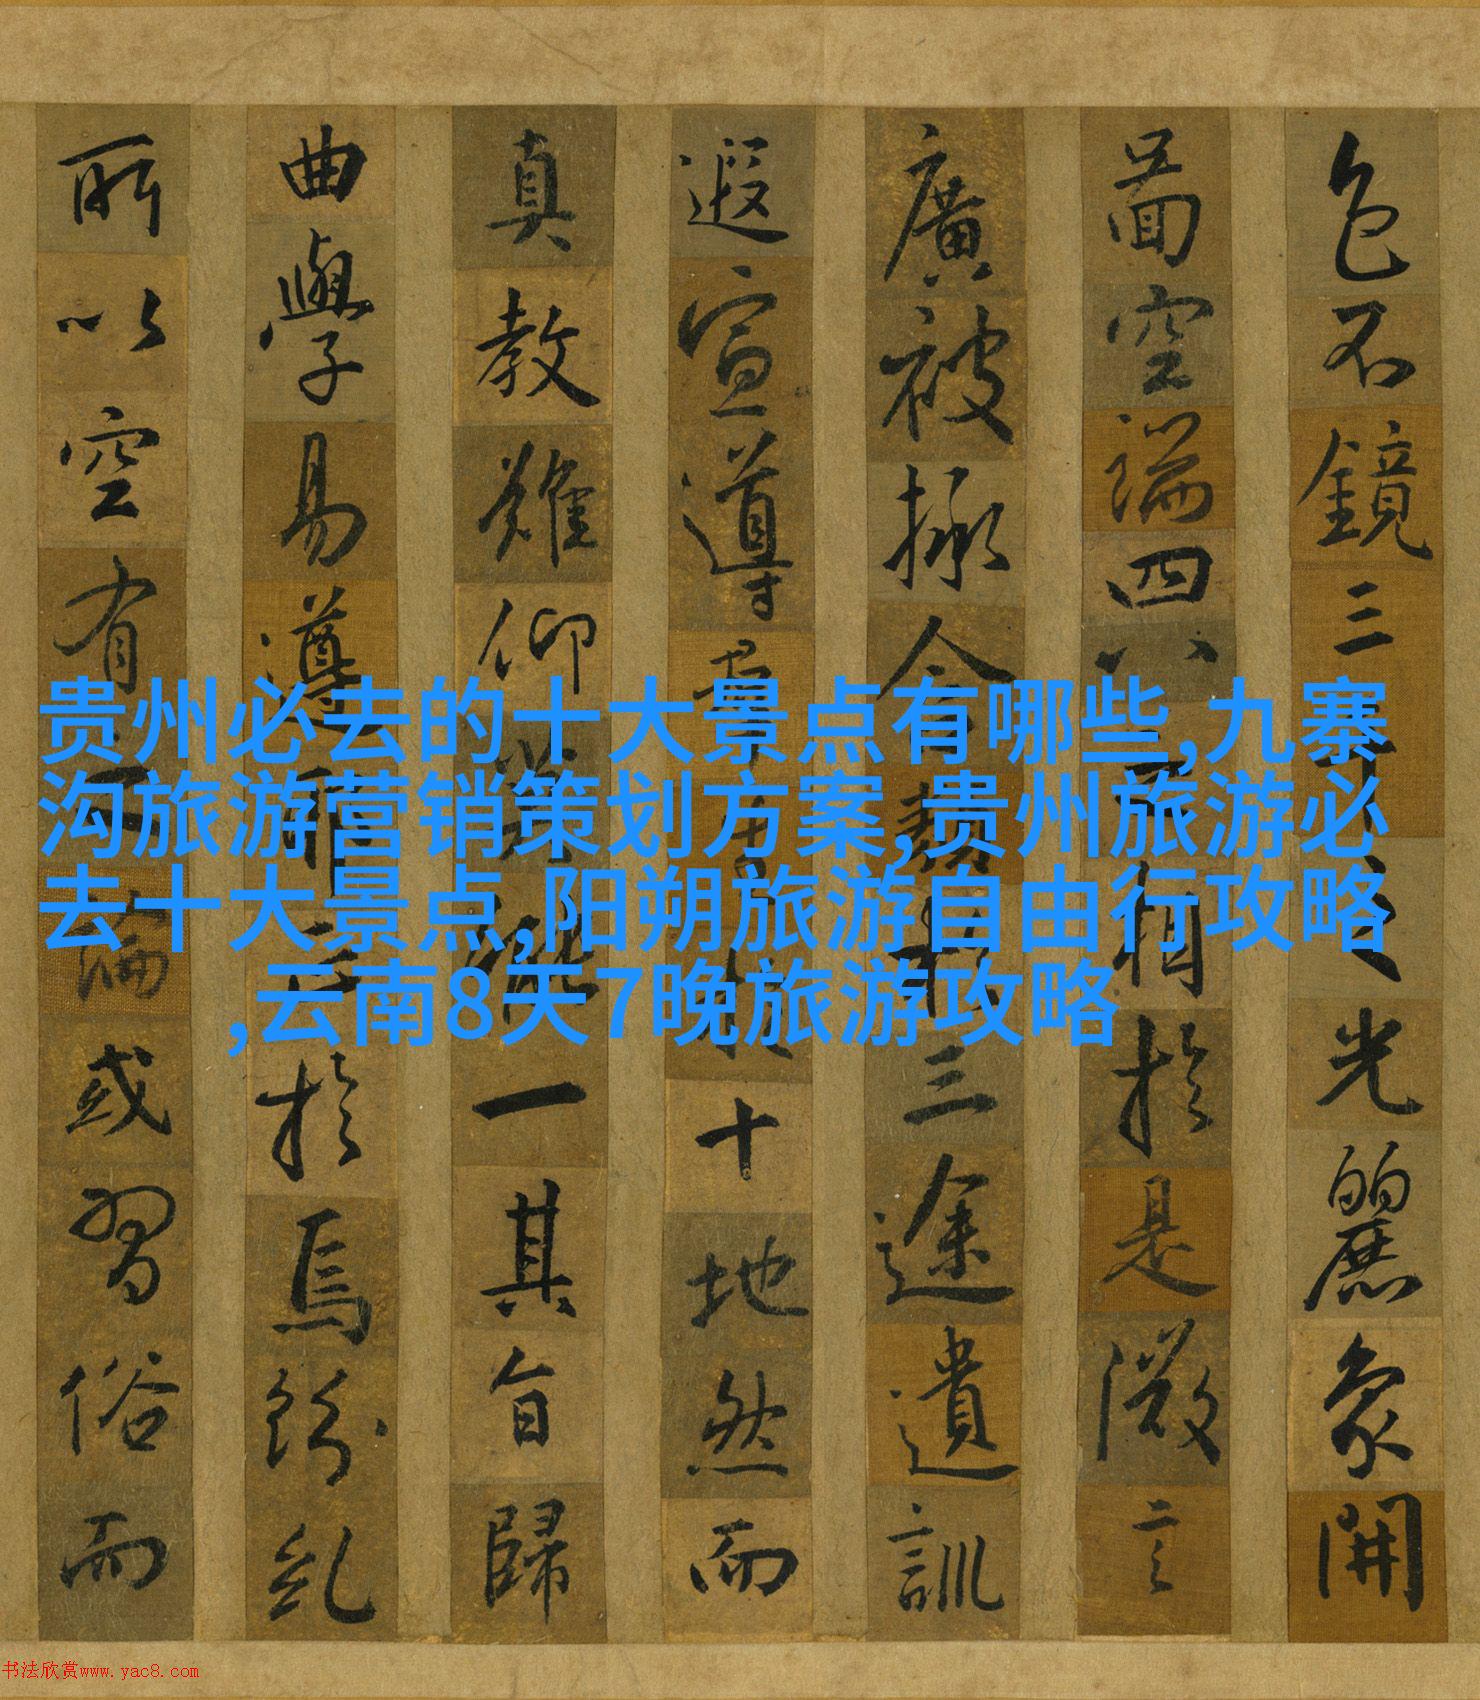 色不鏡三千之光麗象開
圖空端四八之相於是微言
廣被拯含類於三途遺訓
遐宣導群生於十地然而
真教難仰莫能一其旨歸
曲學易遵邪正於焉紛糺
所以空有之論或習俗而
贵州必去的十大景点有哪些,九寨
沟旅游营销策划方案,贵州旅游必
去十大景点,阳朔旅游自由行攻略
,云南8天7晚旅游攻略
书法欣赏www.yac8.com